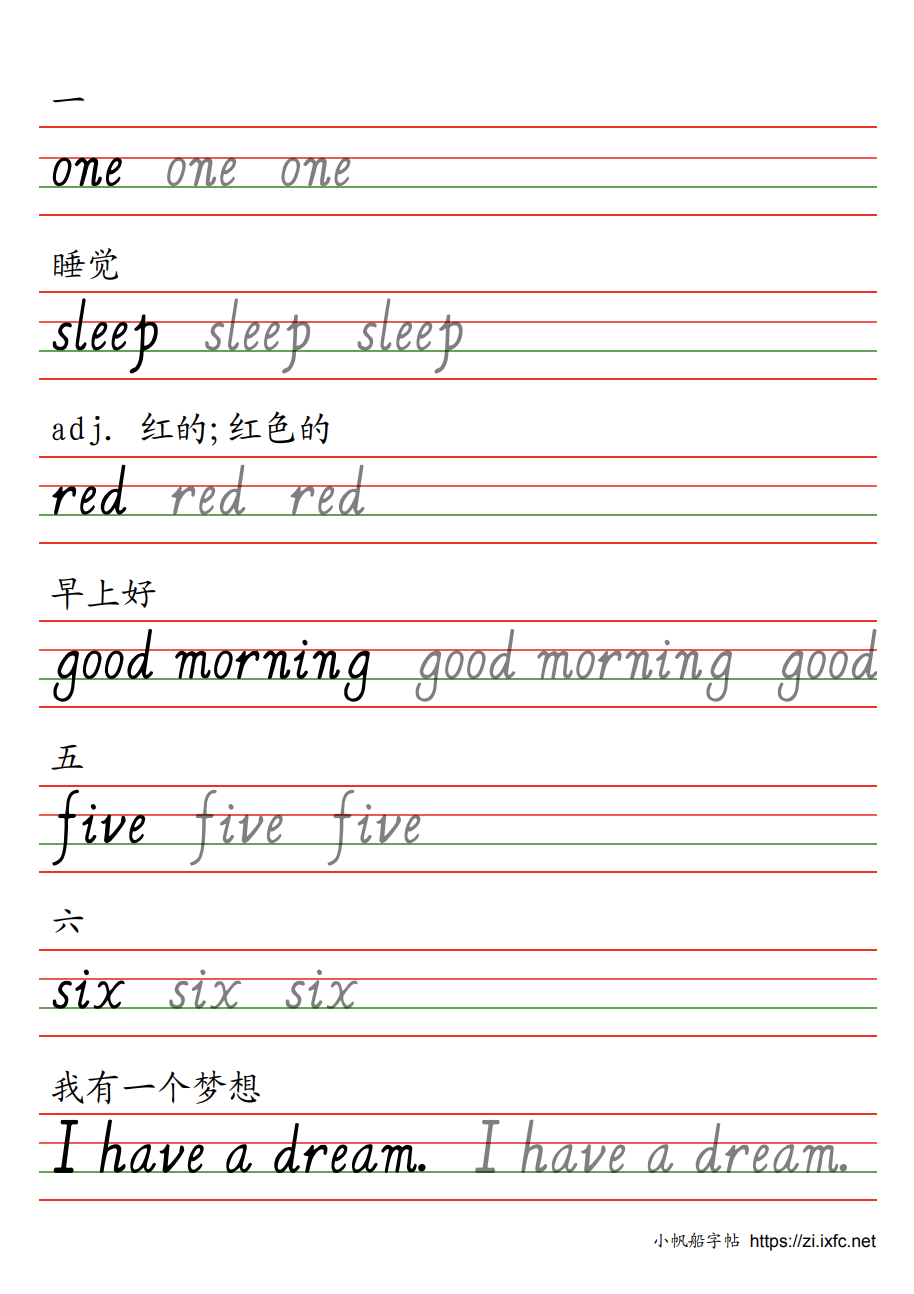 一
one one one
睡觉
sleep sleep sleep
adj. 红的;红色的
red red red
早上好
good morning good morning good
五
five five five
六
six six six
我有一个梦想
I have a dream. I have a dream.
小帆船字帖 https://zi.ixfc.net